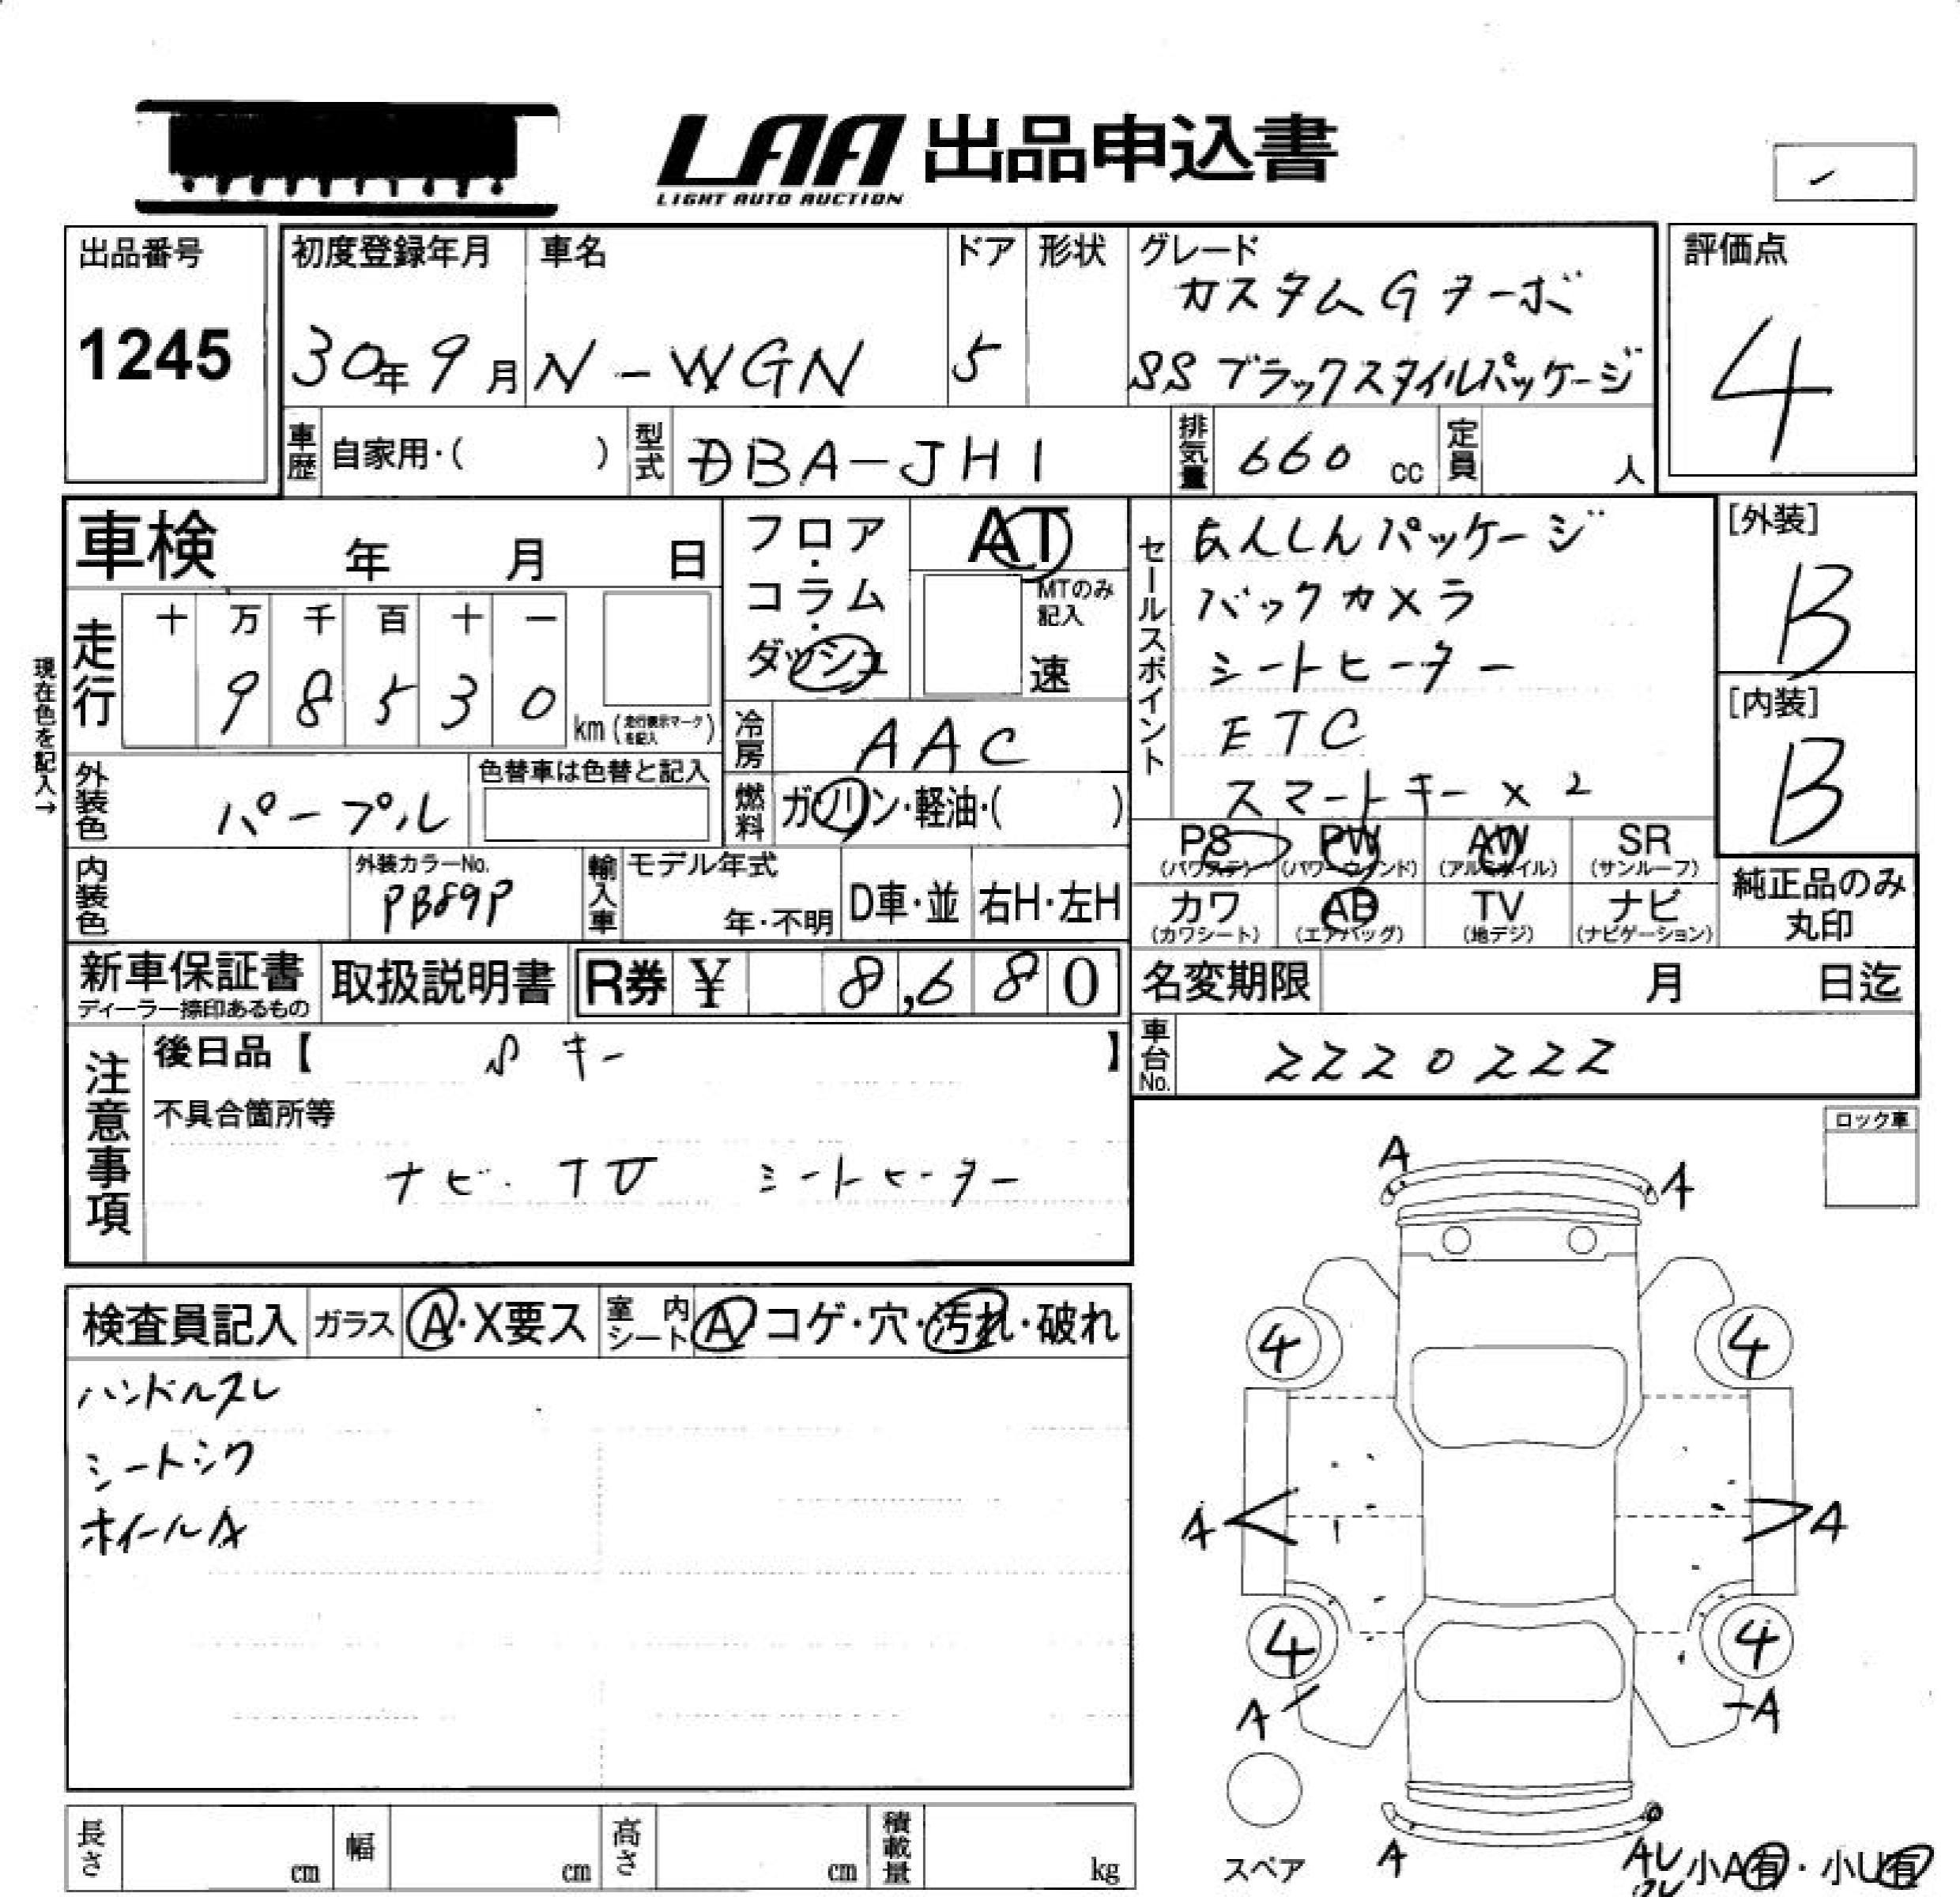 LAA 出品申込書
LIGHT AUTO AUCTION
出品番号
1245
初度登録年月
30年9月
車名
N-WGN
ドア
5
形状
グレード
カスタムGターボ
SSブラックスタイルパッケージ
評価点
4
車歴 自家用・( )
型式 DBA-JH1
排気量 660 cc
定員 人
車検 年 月 日
フロア・コラム・ダッシュ
AT
MTのみ記入
速
セールスポイント
あんしんパッケージ
バックカメラ
シートヒーター
ETC
スマートキー×2
[外装]
B
[内装]
B
現在色を記入→
走行
十 万 千 百 十 一
9 8 5 3 0
km (走行表示マークを記入)
冷房 AAC
外装色 パープル
色替車は色替と記入
燃料 ガソリン・軽油・( )
PS (パワステ)
PW (パワーウィンド)
AW (アルミホイル)
SR (サンルーフ)
カワ (カワシート)
AB (エアバッグ)
TV (地デジ)
ナビ (ナビゲーション)
純正品のみ丸印
内装色
外装カラーNo.
PB89P
輸入車
モデル年式
年・不明
D車・並
右H・左H
新車保証書
ディーラー捺印あるもの
取扱説明書
R券 ¥ 8,680
名変期限 月 日迄
注意事項
後日品【 Sキー 】
不具合箇所等
ナビ・TV シートヒーター
車台No. 2220222
ロック車
検査員記入
ガラス A・X要ス
室内シート A コゲ・穴・汚れ・破れ
ハンドルスレ
シートシワ
ホイールA
A
A
4
4
A
A
4
4
A
A
スペア
A
AU
小A有・小U有
長さ cm
幅 cm
高さ cm
積載量 kg